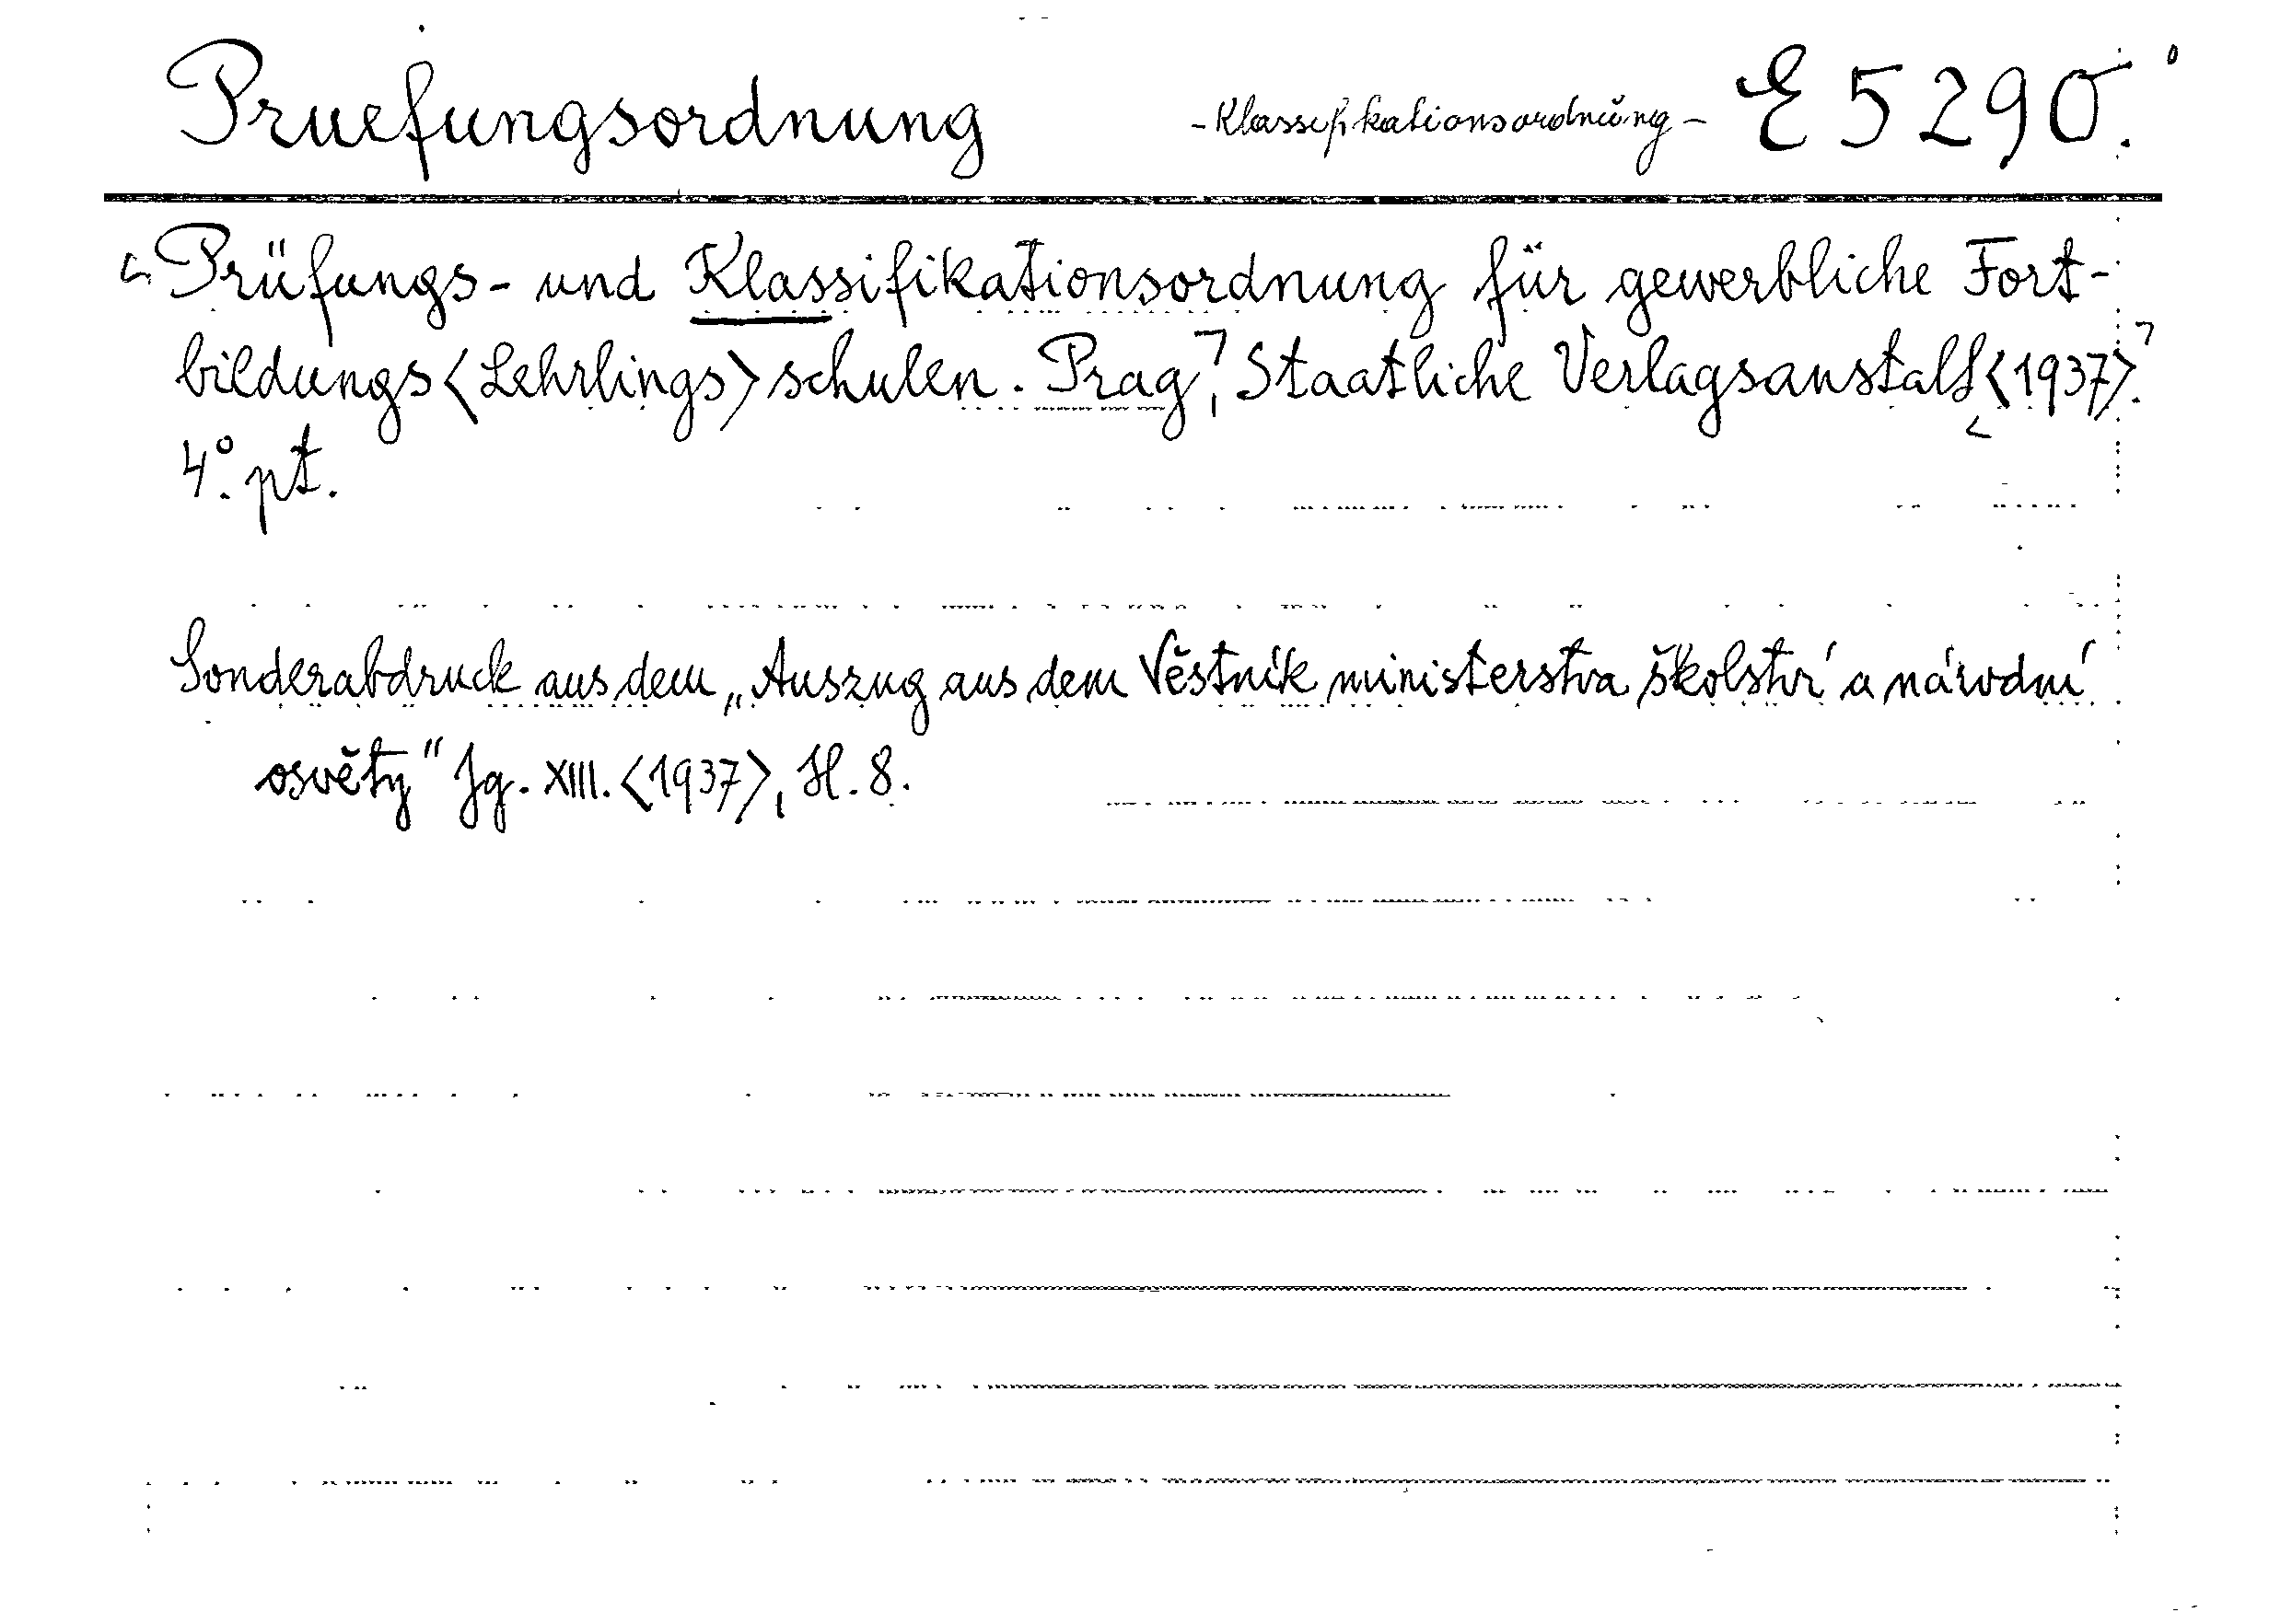 Pruefungsordnung - Klassifikationsordnung - E 5290.
Prüfungs- und Klassifikationsordnung für gewerbliche Fort-
bildungs<Lehrlings>schulen. Prag, Staatliche Verlagsanstalt <1937>.
4°. pt.
Sonderabdruck aus dem „Auszug aus dem Věstník ministerstva školství a národní
osvěty" Jg. XIII. <1937>, H. 8.